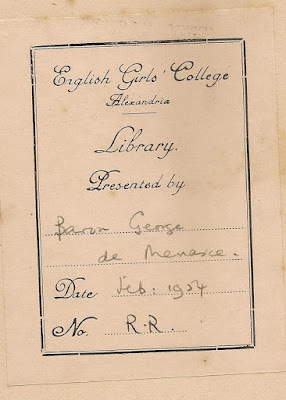 English Girls' College
Alexandria
Library.
Presented by
Baron George
de Menasce.
Date Feb: 1954
No. R.R.